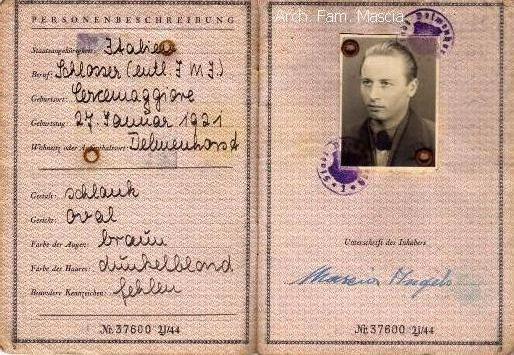 PERSONENBESCHREIBUNG
Staatsangehörigkeit: Italien
Beruf: Schlosser (entl. I M I.)
Geburtsort: Cercemaggiore
Geburtstag: 27. Januar 1921
Wohnsitz oder Aufenthaltsort: Delmenhorst
Gestalt: schlank
Gesicht: Oval
Farbe der Augen: braun
Farbe des Haares: dunkelblond
Besondere Kennzeichen: fehlen
Nr. 37600 21/44
Arch. Fam. Mascia
Delmenhorst
Unterschrift des Inhabers
Mascia Angelo
Nr. 37600 21/44